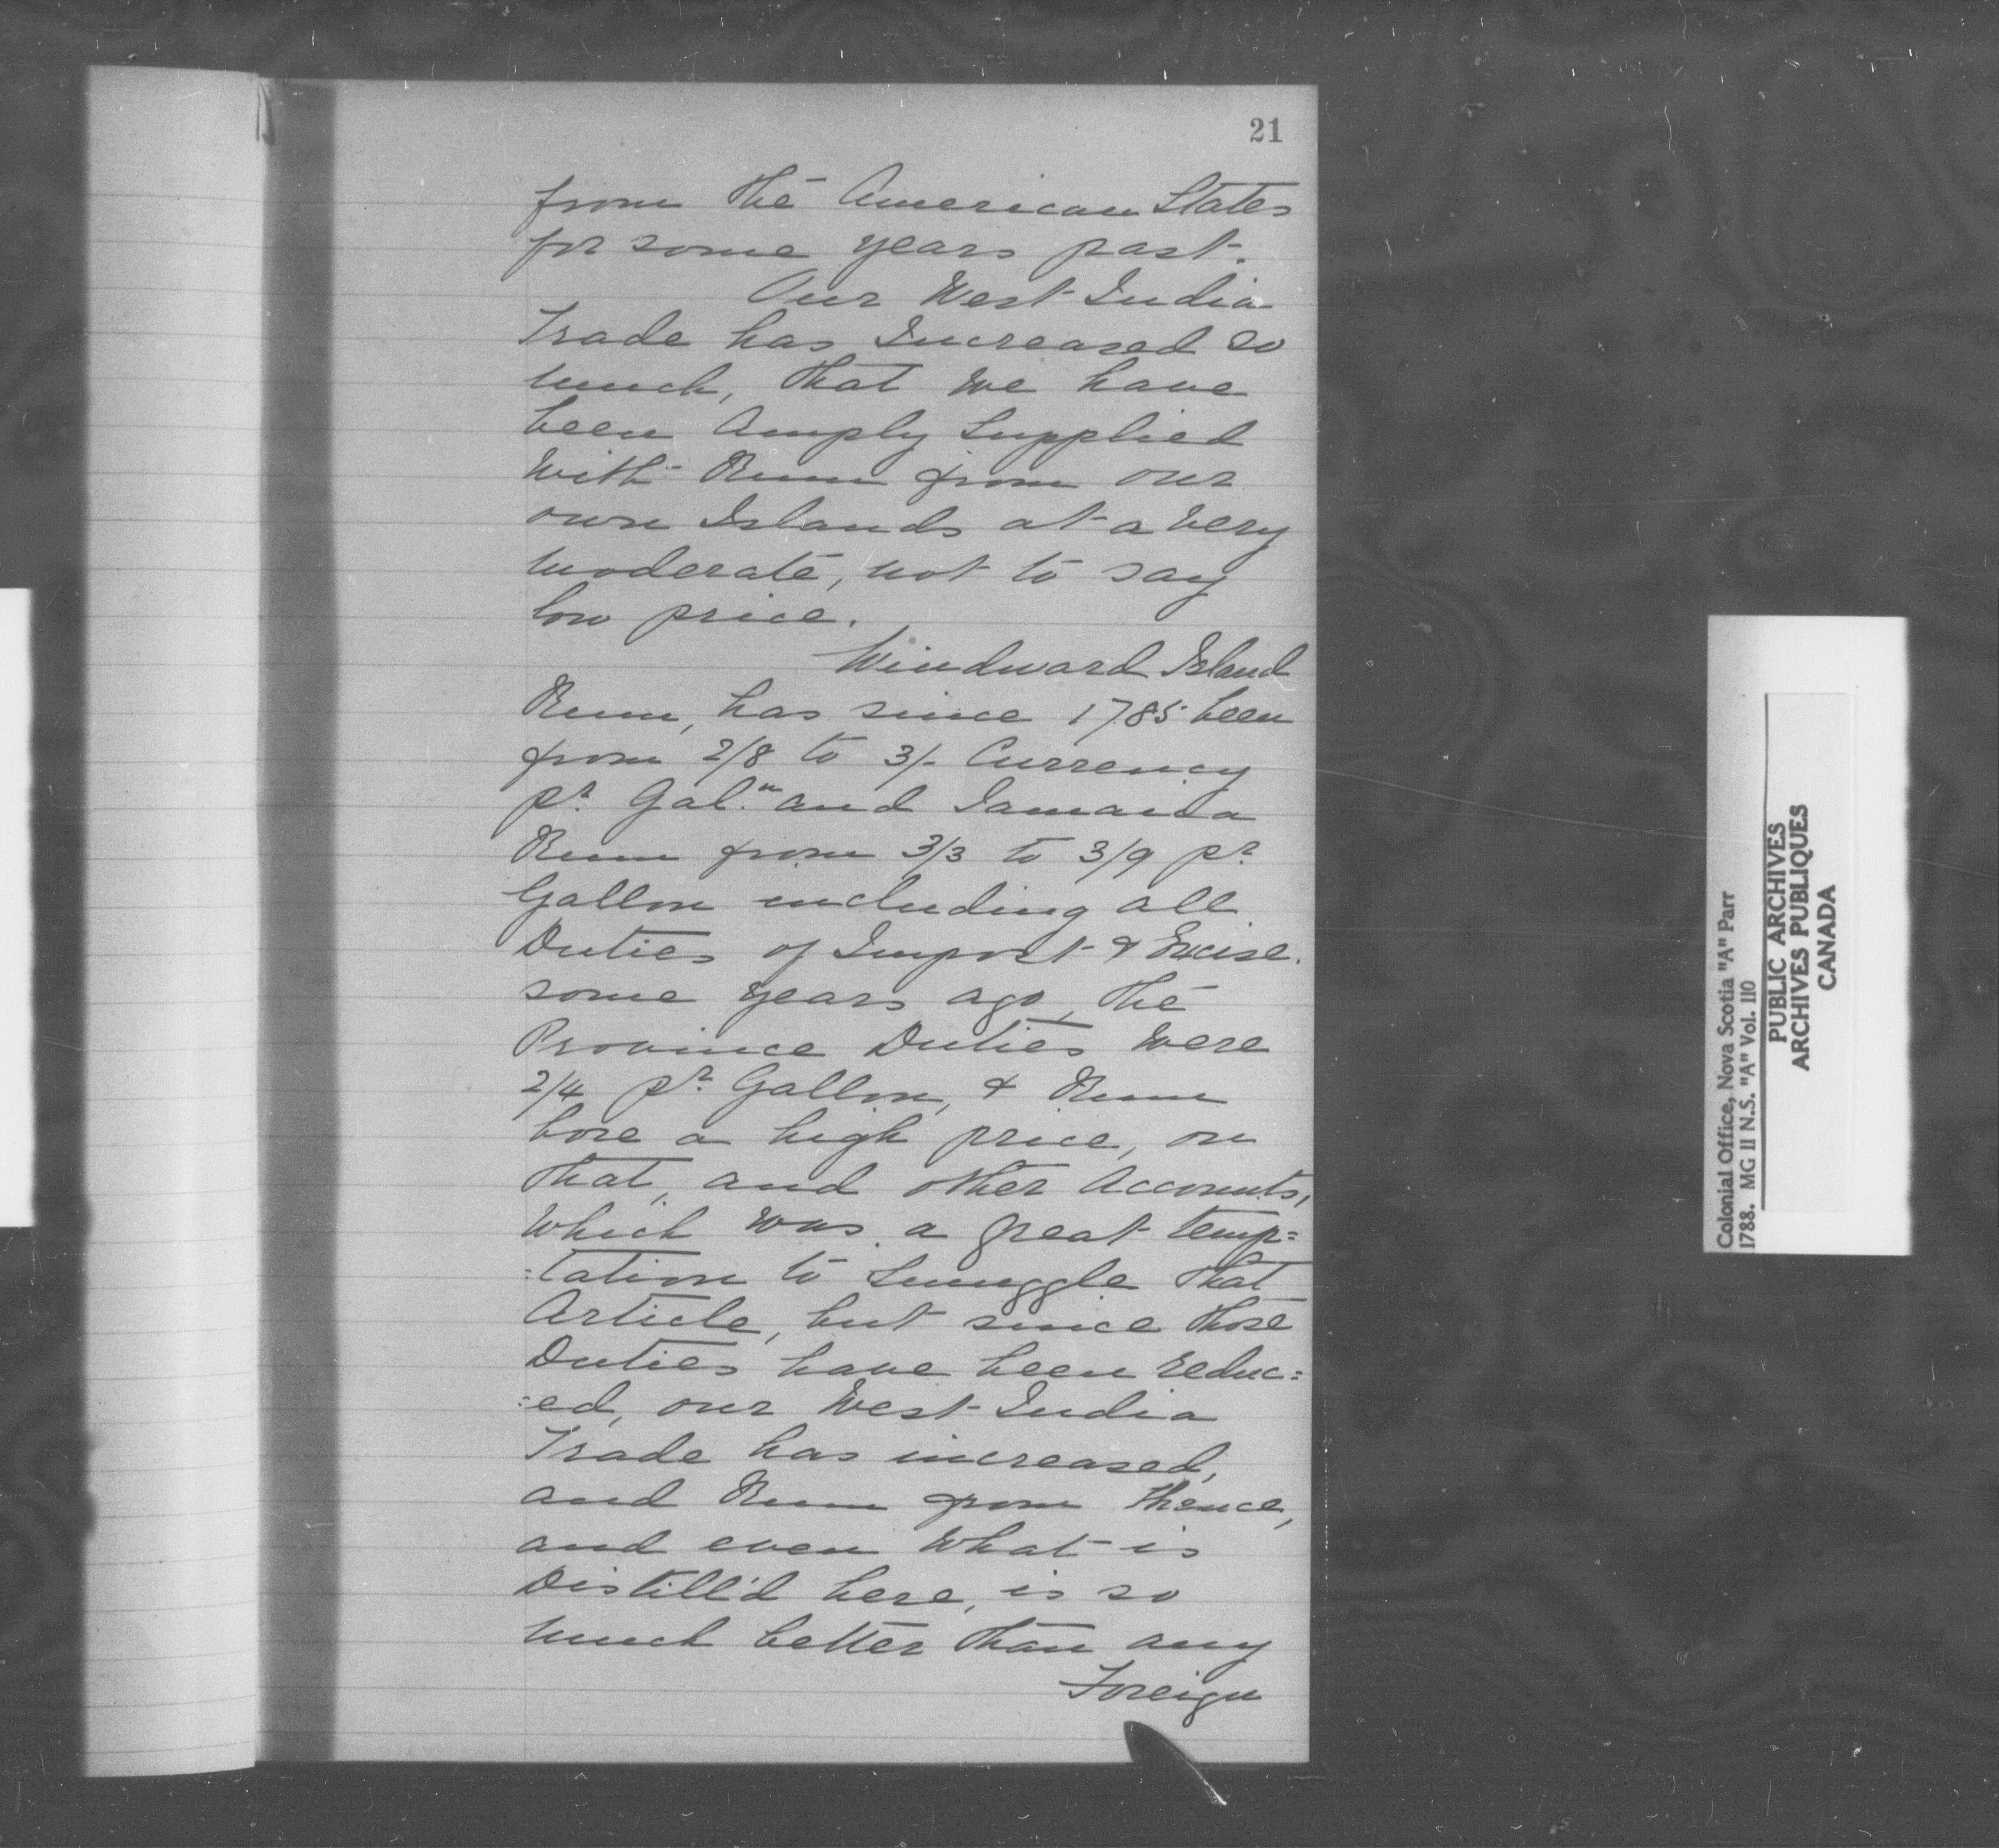 21
from the American States
for some years past.
Our West India
Trade has Increased so
much, that we have
been Amply Supplied
with Rum from our
own Islands at a very
moderate, not to say
low price.
Windward Island
Rum, has since 1785 been
from 2/8 to 3/- Currency
pr. Gal.n and Jamaica
Rum from 3/3 to 3/9 pr.
Gallon including all
Duties of Import & Excise.
some years ago, the
Province Duties were
2/4 pr. Gallon, & Rum
bore a high price, on
that, and other Accounts,
which was a great temp=
=tation to Smuggle that
Article, but since those
Duties have been reduc=
=ed, our West India
Trade has increased,
and Rum from thence,
and even what is
Distill'd here, is so
much better than any
Foreign
Colonial Office, Nova Scotia "A" Parr
1788. MG 11 N.S. "A" Vol. 110
PUBLIC ARCHIVES
ARCHIVES PUBLIQUES
CANADA